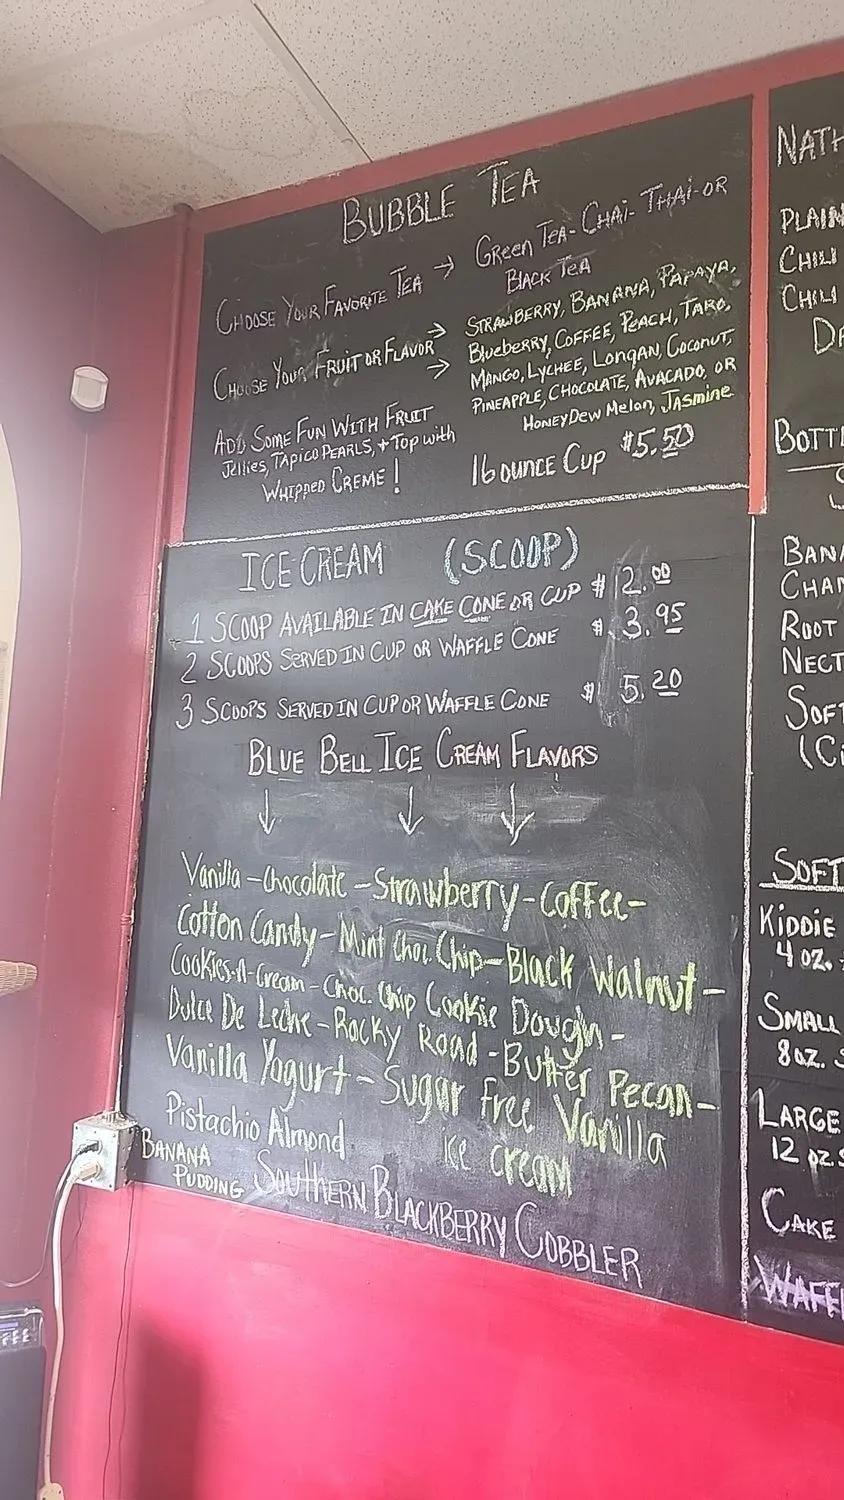 BUBBLE TEA
CHOOSE YOUR FAVORITE TEA → GREEN TEA - CHAI - THAI - OR
BLACK TEA
CHOOSE YOUR FRUIT OR FLAVOR → → STRAWBERRY, BANANA, PAPAYA,
Blueberry, COFFEE, PEACH, TARO,
MANGO, LYCHEE, LONGAN, COCONUT,
PINEAPPLE, CHOCOLATE, AVACADO, OR
HONEYDEW Melon, JASmine
ADD SOME FUN WITH FRUIT
Jellies, TAPICO PEARLS, + TOP with
WHIPPED CREME!
16 OUNCE CUP $5.50
ICE CREAM (SCOOP)
1 SCOOP AVAILABLE IN CAKE CONE OR CUP $ 2.00
2 SCOOPS SERVED IN CUP OR WAFFLE CONE $ 3.95
3 SCOOPS SERVED IN CUP OR WAFFLE CONE $ 5.20
BLUE BELL ICE CREAM FLAVORS
↓ ↓ ↓
Vanilla - Chocolate - Strawberry - Coffee -
Cotton Candy - Mint Choc. Chip - Black Walnut -
Cookies-N-Cream - Choc. Chip Cookie Dough -
Dulce De Leche - Rocky Road - Butter Pecan -
Vanilla Yogurt - Sugar free Vanilla
Pistachio Almond ice cream
BANANA
PUDDING SOUTHERN BLACKBERRY COBBLER
NATH
PLAIN
CHILI
CHILI
BOTT
BANA
CHAM
ROOT
NECT
SOFT
(Ci
SOFT
KIDDIE
4 OZ.
SMALL
8 OZ. S
LARGE
12 OZ S
CAKE
WAFF